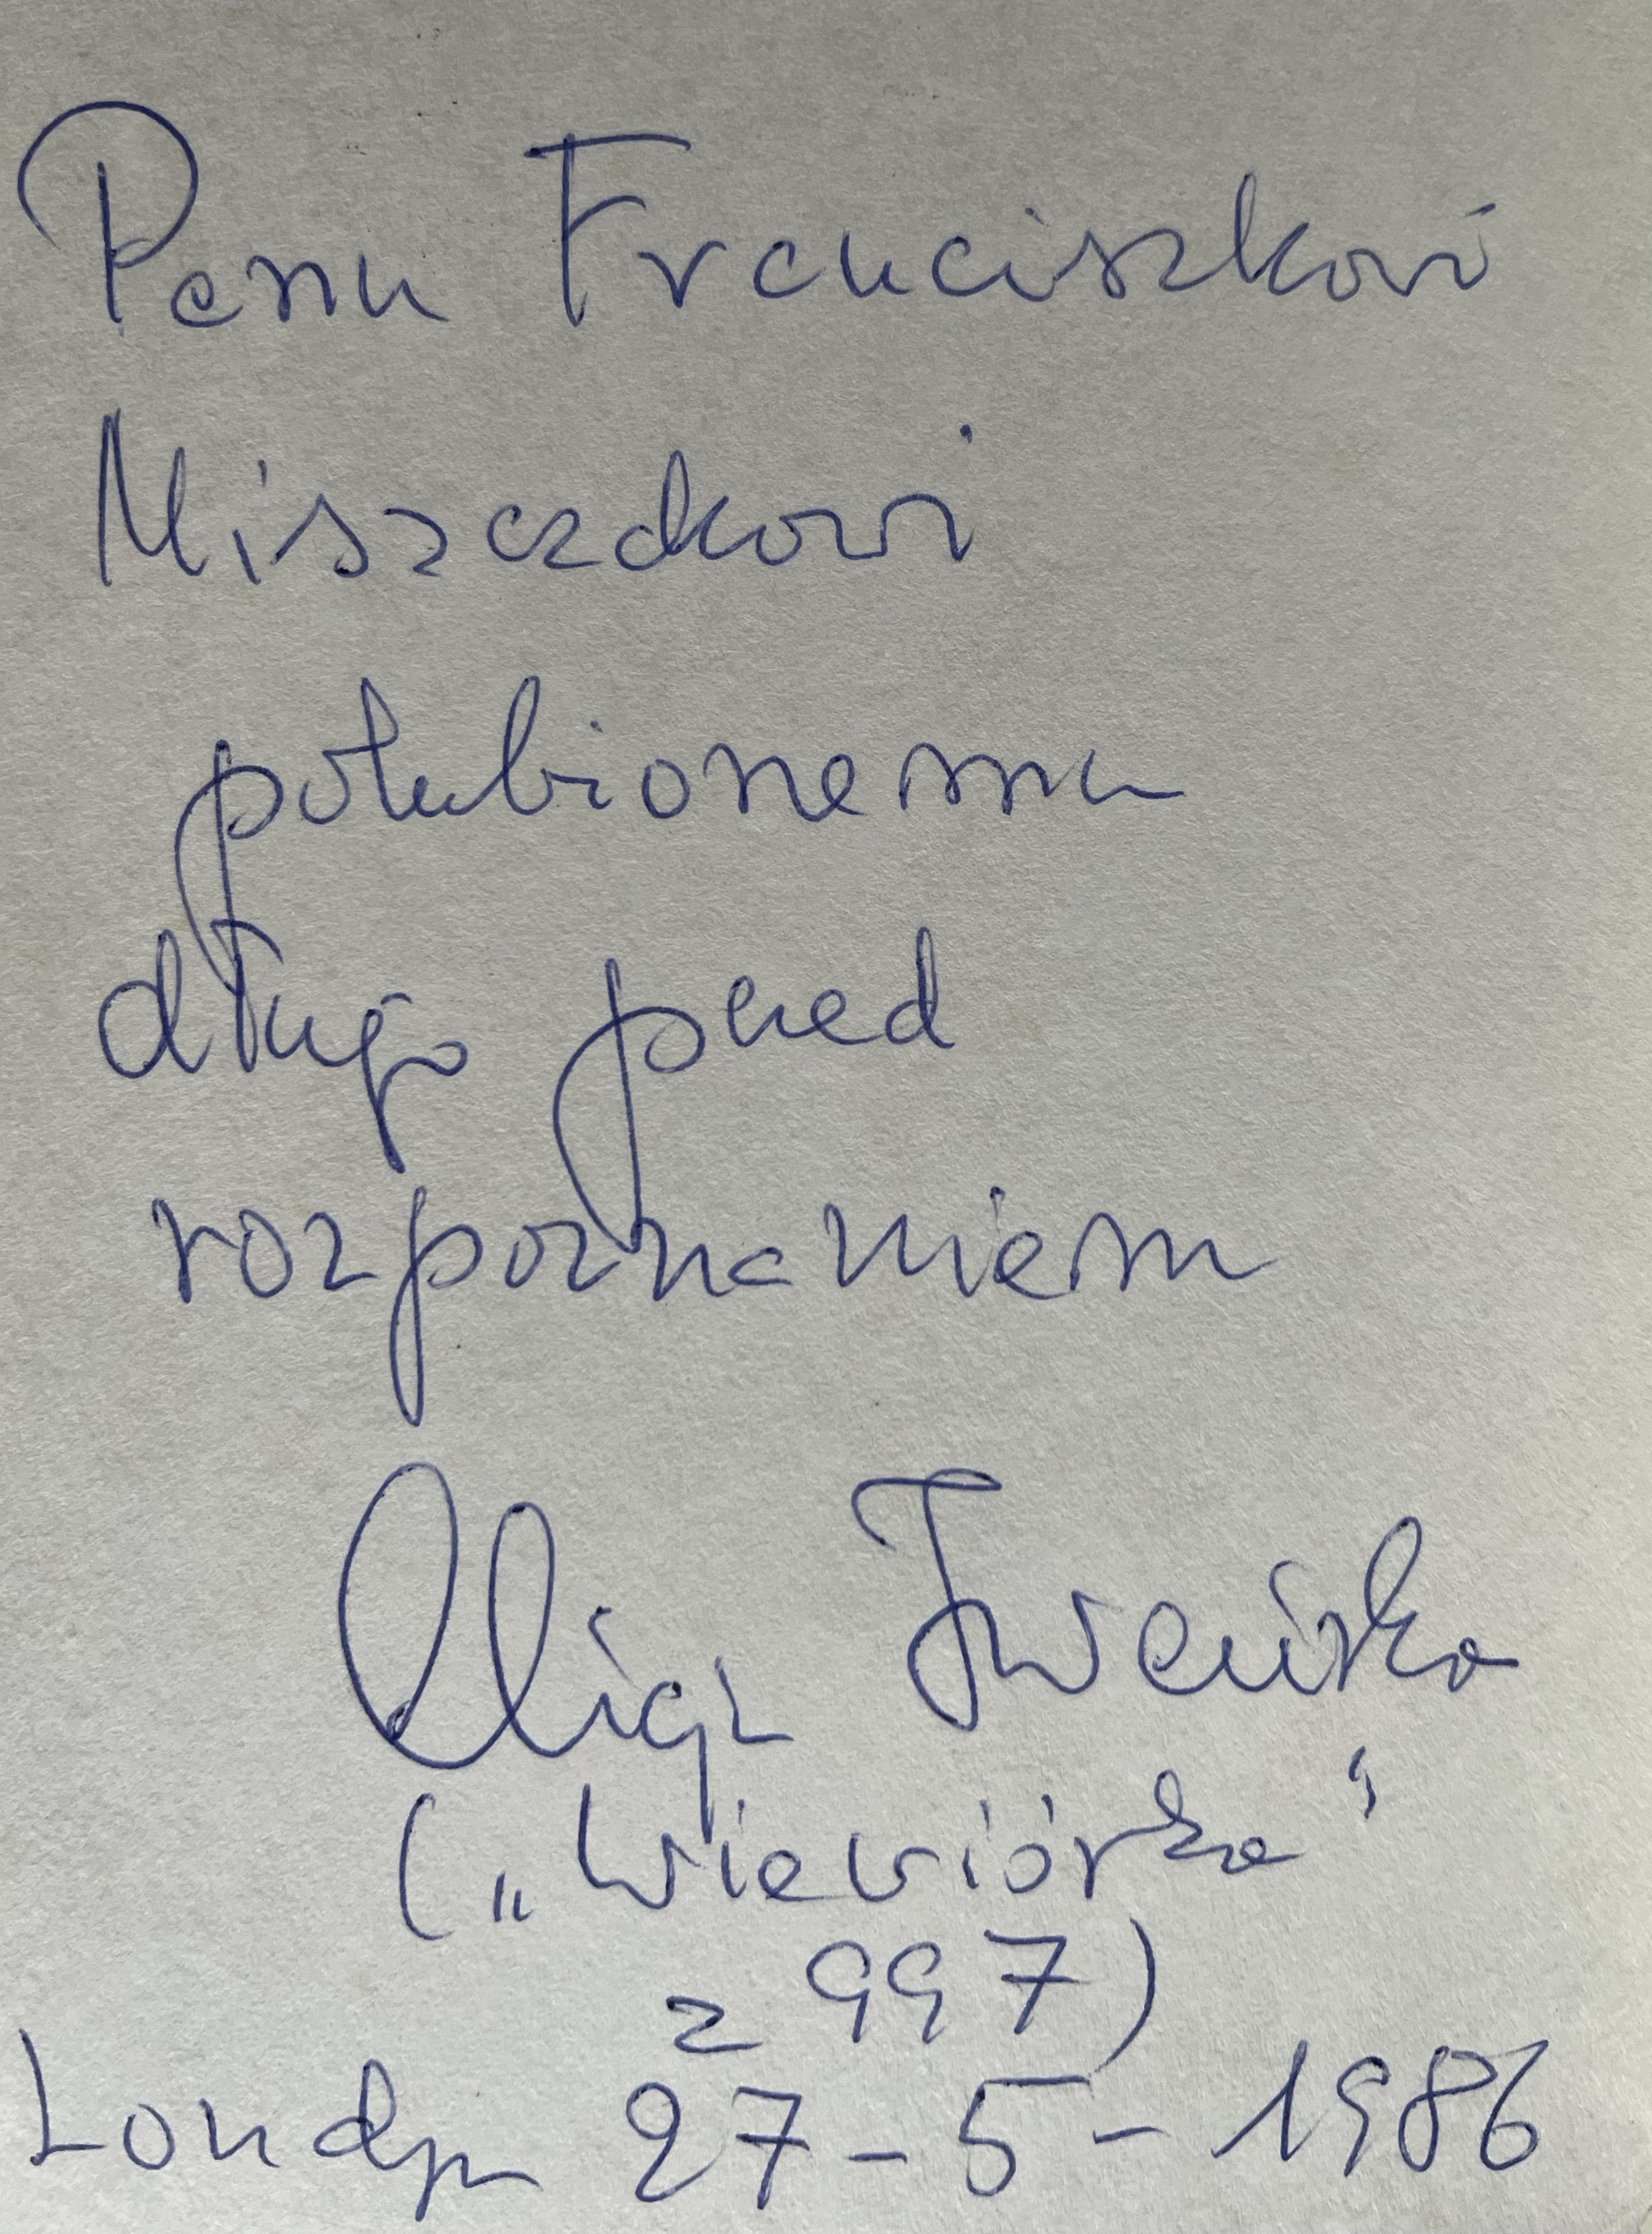 Panu Franciszkowi
Miszczakowi
polubionemu
długo przed
rozpoznaniem
Iwańska
("Wiewiórka"
z 997)
Londyn 27-5-1986